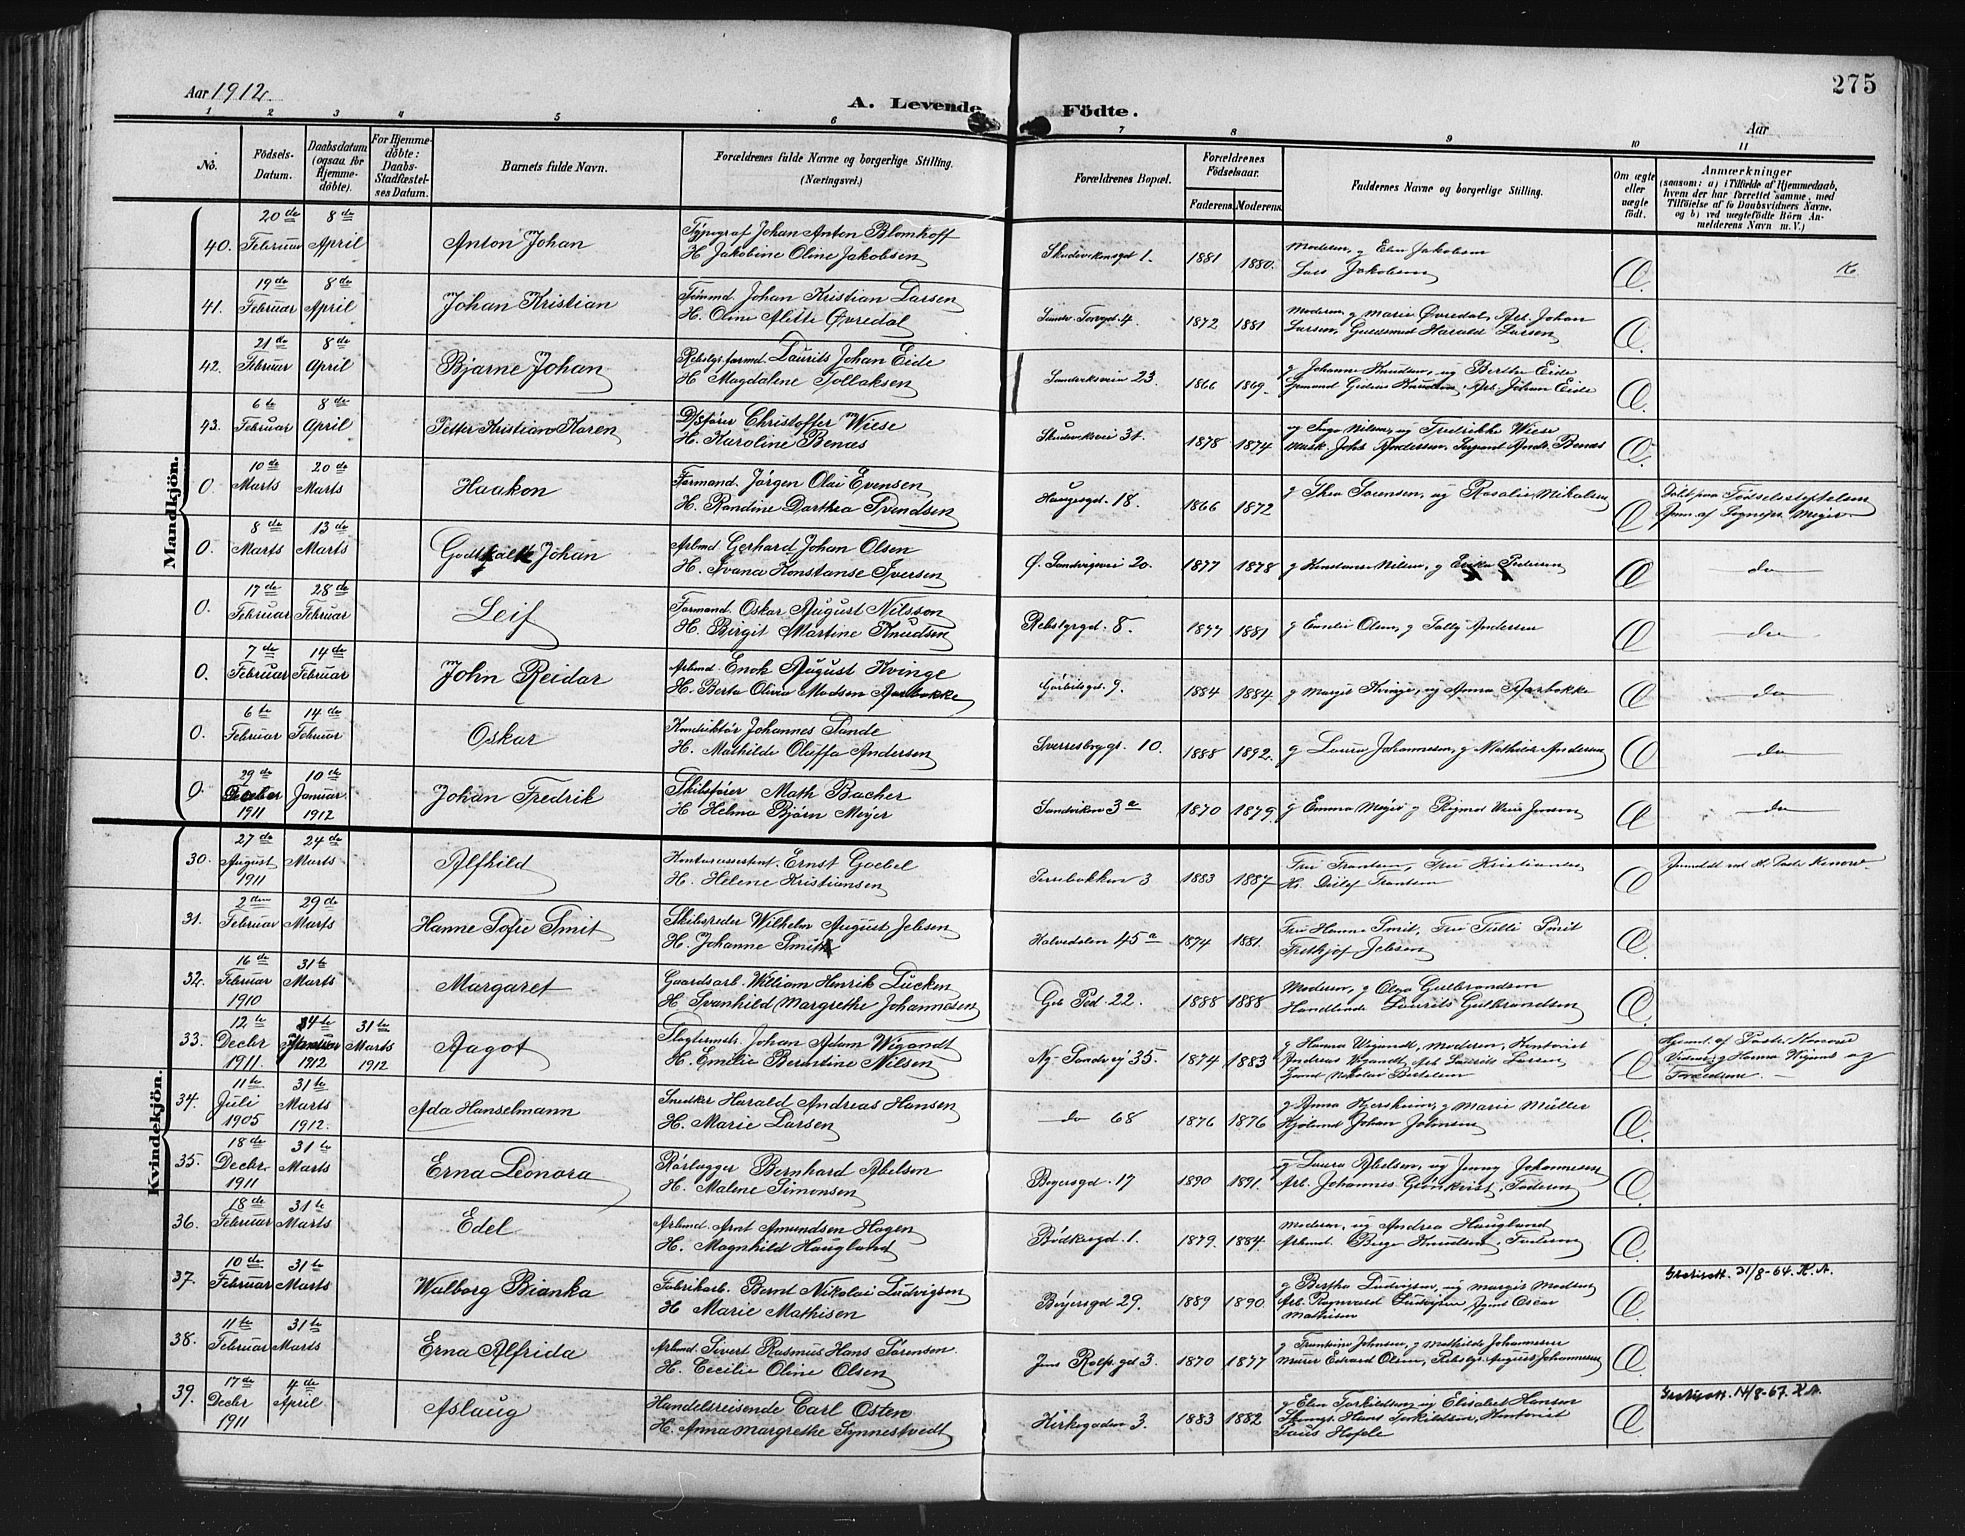 275
Aar 1912. A. Levende Födte. Aar
1 2 3 4 5 6 7 8 9 10 11
No.
Födsels-Datum.
Daabsdatum (ogsaa for Hjemme-döbte).
For Hjemme-döbte: Daabs-Stadfæstel-ses Datum.
Barnets fulde Navn.
Forældrenes fulde Navne og borgerlige Stilling. (Næringsvei.)
Forældrenes Bopæl.
Forældrenes Födselsaar.
Faderens. Moderens.
Faddernes Navne og borgerlige Stilling.
Om ægte eller uægte födt.
Anmærkninger (saasom: a) i Tilfælde af Hjemmedaab, hvem der har forrettet samme, med Tilföielse af to Daabsvidners Navne, og b) ved uegtefödte Börn An-melderens Navn m. V.)
Mandkjön.
40. 20de Februar 8de April Anton Johan
Typograf Johan Anton Blomhoff
H. Jakobine Oline Jakobsen
Skudevikensgd 1. 1881 1880.
Moderen, g Elen Jakobsen
Lars Jakobsen
41. 19de Februar 8de April Johan Kristian
Tømmd. Johan Kristian Larsen
H. Oline Alette Øvredal
Sandv. Torvgd. 4. 1872 1881
Moderen, g Marie Øvredal, Arb. Johan
Larsen, Guldsmed Harald Larsen
42. 21de Februar 8de April Bjarne Johan
Rebslg.formd. Laurits Johan Eide
H. Magdalene Tollaksen
Sandviksvein 23. 1866 1869.
g Johanne Knudsen, ug Berthe Eide
Gidion Knudsen, Arb. Johan Eide
43. 6te Februar 8de April Petter Kristian Koren
D/sfører Christoffer Wiese
H. Karoline Benas
Skudeviksvei 31. 1878 1874
ug Inga Nilsen, ug Fredrikke Wiese
Mask. Johs Andersen, Sergeant Andr. Benas
0. 10de Marts 20de Marts Haakon
Formand. Jørgen Olai Evensen
H. Randine Dorthea Svendsen
Haugesgd. 18. 1866 1872
g Thea Sørensen, ug Rosalie Mikalsen
Døbt paa Fødselsstiftelsen
Anm. af Sogneprs. Meyer
0. 8de Marts 13de Marts Godtfalk Johan
Arbmd Gerhard Johan Olsen
H. Ivana Konstanse Iversen
Ø. Sandvigvei 20. 1877 1878
g Konstanse Nilsen, g Erika Pedersen
do
0. 17de Februar 28de Februar Leif
Formand. Oskar August Nilsson
H. Birgit Martine Knudsen
Rebslgrgd. 8. 1877 1881
g Emilie Olsen, g Tolly Andersen
do
0. 7de Februar 14de Februar John Reidar
Arbmd. Enok August Kvinge
H. Berta Olivia Madsen Aarbokke
Garbitsgd. 9. 1884 1884.
g Margit Kvinge, ug Anna Aarbokke
do
0. 6te Februar 14de Februar Oskar
Konduktør Johannes Sande
H. Mathilde Oluffa Andersen
Sverresbryggs. 10. 1888 1892.
g Laura Johannesen, g Mathilde Andersen
do
0. 29de Decber 1911 10de Januar. 1912 Johan Fredrik
Skibsfører Math Bacher
H Helma Bjørn Meyer
Sandviken 3a 1870 1879.
g Emma Meyer g Ragna Jensen
do
Kvindekjön.
30. 27de August 1911 24de Marts Alfhild
Kontorassistent. Ernst Goebel
H. Helene Kristiansen
Persebakken 3 1883 1887
Fru Frantsen, Fru Kristiansen
Hr. Ditlef Frantsen
Anmeldt ved
31. 2den Februar 29de Marts Hanne Sofie Smit
Skibsreder Wilhelm August Jebsen
H. Johanne Smit
Kalvedalen 45a 1874 1881.
Fru Hanne Smit, Fru Tulli Smit
Frithjof Jebsen
32. 16de Februar 1910 31te Marts Margaret
Gaardsarb. William Henrik Lücken
H. Svanhild Margrethe Johannesen
Geb Ped. 22. 1888 1888
Moderen, g Olga Gulbrandsen
Handlende Laurits Gulbrandsen
33. 12te Decbr 1911. 14de Januar 1912 31te Marts 1912 Aagot
Slagtermstr. Johan Adam Wigandt
H. Emilie Berntine Nilsen
Ny-Sandvej 35. 1874 1883
g Hanna Wigandt, Moderen, Kontorist
Andreas Wigandt, Arb. Laurits Larsen,
Nikolai Bertelsen
Forældrene.
34. 11te Juli 1905 31te Marts 1912. Ada Hanselmann
Snedker Harald Andreas Hansen
H. Marie Larsen
do 68 1876 1876
g Anna Kjersheim, g Marie Müller
Johan Johnsen
35. 18de Decbr. 1911 31te Marts Erna Leonora
Rørlægger Bernhard Abelsen
H. Malene Simonsen
Beyersgd. 17 1890 1891.
ug Laura Abelsen, ug Jenny Johannesen
Arb. Johannes Grønkvist, Faderen
36. 18de Februar 31te Marts Edel
Arbmd. Arnt Amundsen Hagen
H. Magnhild Haugland
Bødkergd. 1. 1879. 1884.
Moderen, ug Andrea Haugland
Arbmd. Berge Knudsen, Faderen
37. 10de Februar 31te Marts Walborg Bianka
Fabrikarb. Bernt Nikolai Ludvigsen
H Marie Mathisen
Beyersgd 29. 1889 1890.
g Bertha Ludvigsen, ug Margit Madsen
Arb. Ragnvald Ludvigsen, Oscar
Mathisen
31/8-64. K.A.
38. 11te Februar 31te Marts Erna Alfrida
Arbmd. Sivert Rasmus Hans Sørensen.
H. Cecilie Oline Olsen
Jens Rolfs.gd 3. 1870 1877
g Frantsine Johnsen, g Mathilde Johannesen
Murer Edvard Olsen, Rebslgr. August Johannesen
39. 17de Decbr 1911 4de April Aslaug
Handelsreisende Carl Osten
H. Anna Margrethe Synnestvedt
Kirkegaden 3. 1883 1882
g Elen Torkildsen, ug Elisabet Hansen
Hans Torkildsen, Kontorist
14/8-67. K.A.